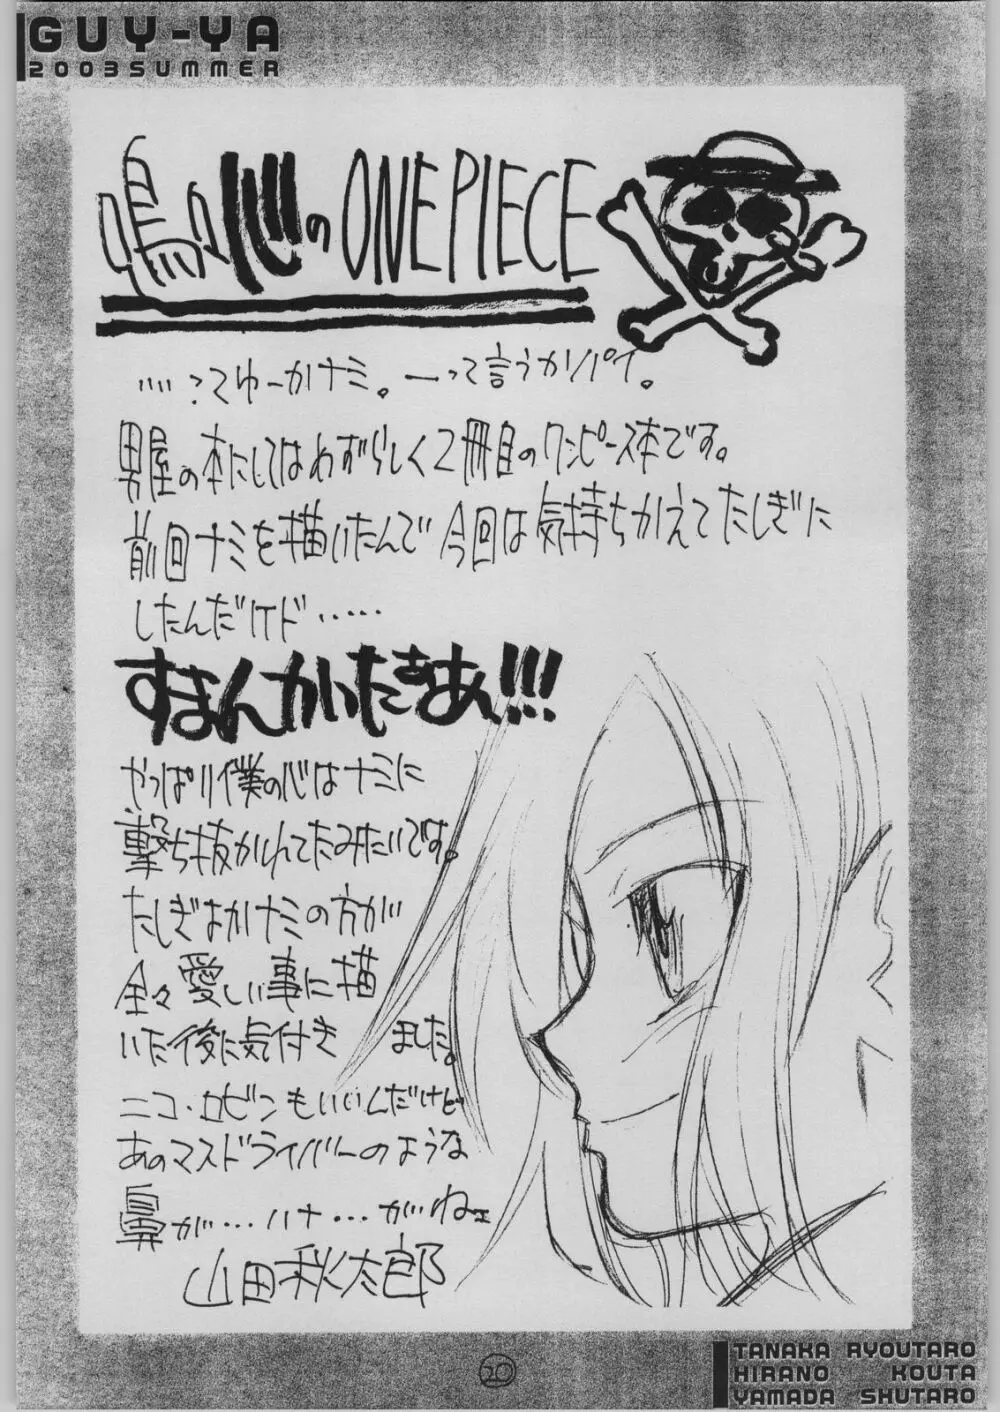 GUY-YA
2003SUMMER
心の ONE PIECE
……ってゆーかナミ。―って言うかパイ。
男屋の本にしてはめずらしく2冊目のワンピース本です。
前回ナミを描いたんで今回は気持ちかえてたしぎに
したんだけド……
すまんかいたさあん!!!
やっぱり僕の心はナミに
撃ち抜かれてたみたいです。
たしぎよかナミの方が
全々愛しい事に描
いた後に気付き ました。
ニコ・ロビンもいいんだけど
あのマスドライバーのような
鼻が…ハナ…がねェ
山田秋太郎
20
TANAKA RYOUTARO
HIRANO KOUTA
YAMADA SHUTARO